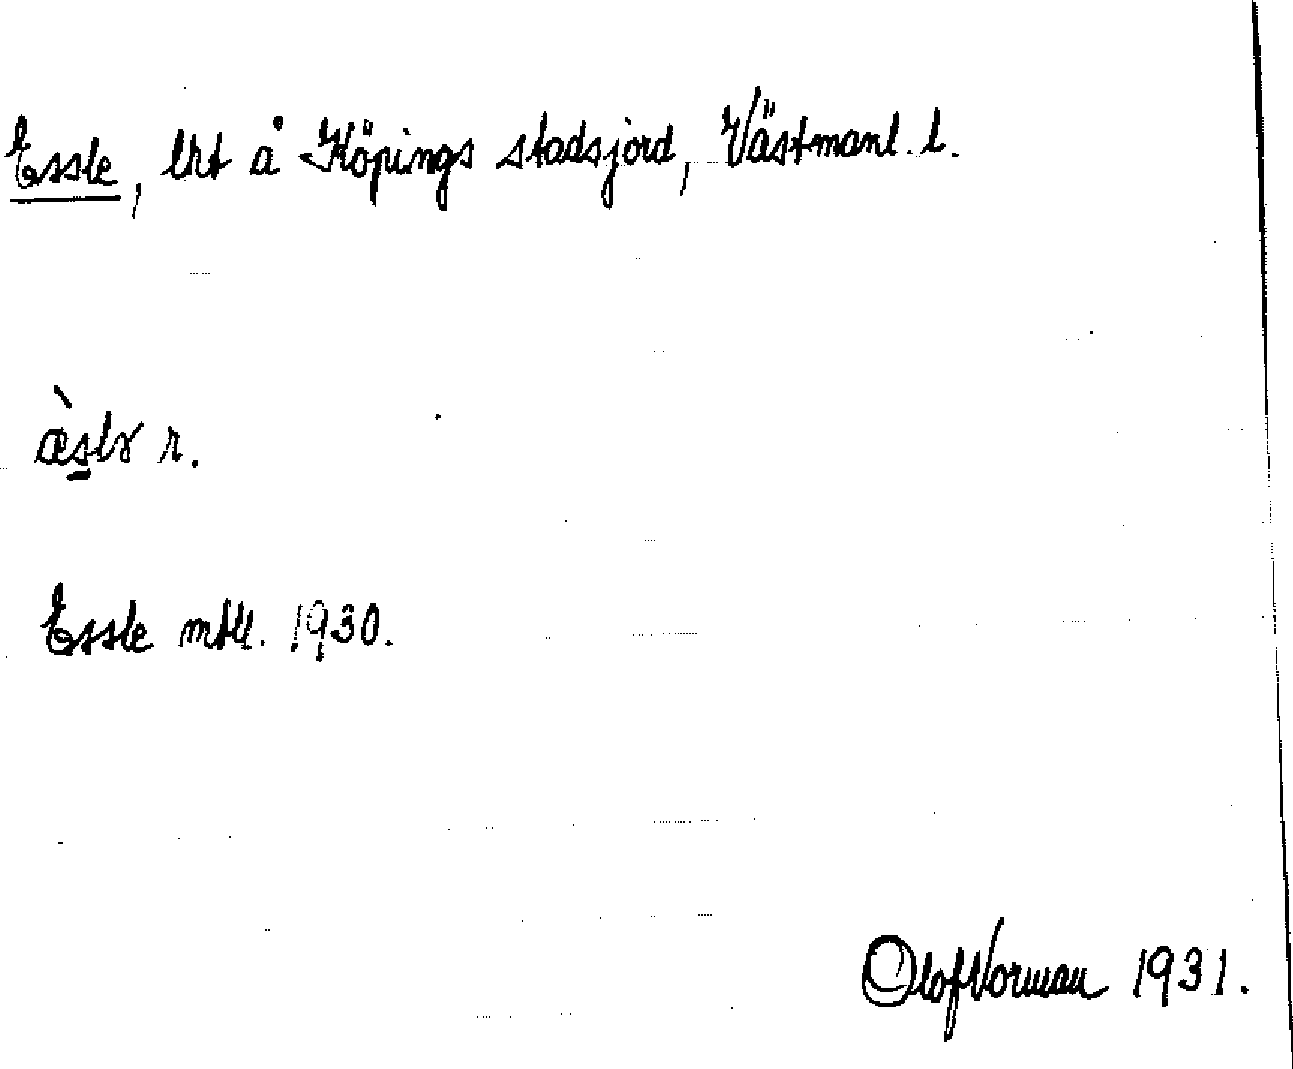 Essle, lht å Köpings stadsjord, Västmanl. l.
æ̀slɤ r.
Essle mtll. 1930.
Olof Norman 1931.